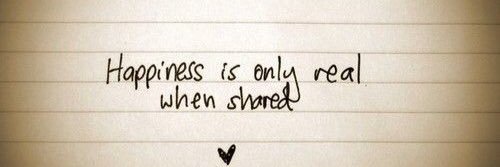 Happiness is only real
when shared